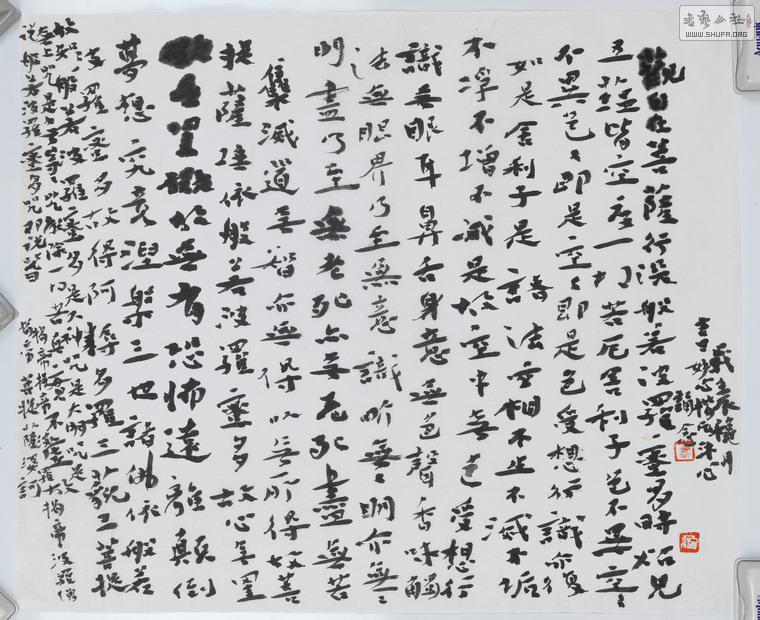 觀自在菩薩行深般若波羅蜜多時照見
五蕴皆空度一切苦厄舍利子色不異空〻
不異色〻即是空〻即是色受想行識亦復
如是舍利子是諸法空相不生不滅不垢
不淨不增不減是故空中無色受想行
識無眼耳鼻舌身意無色聲香味觸
法無眼界乃至無意識界無〻明亦無〻
明盡乃至無老死亦無老死盡無苦
集滅道無智亦無得以無所得故菩
提薩埵依般若波羅蜜多故心無罣
故無有恐怖遠離顛倒
夢想究竟涅槃三世諸佛依般若
波羅蜜多故得阿耨多羅三藐三菩提
故知般若波羅蜜多是大神咒是大明咒是
無上咒是無等〻咒能除一切苦真實不虛故
說般若波羅蜜多咒即說咒曰
揭帝揭帝波羅揭帝波羅僧
揭帝菩提薩婆訶
書藝公社
WWW.SHUFA.ORG